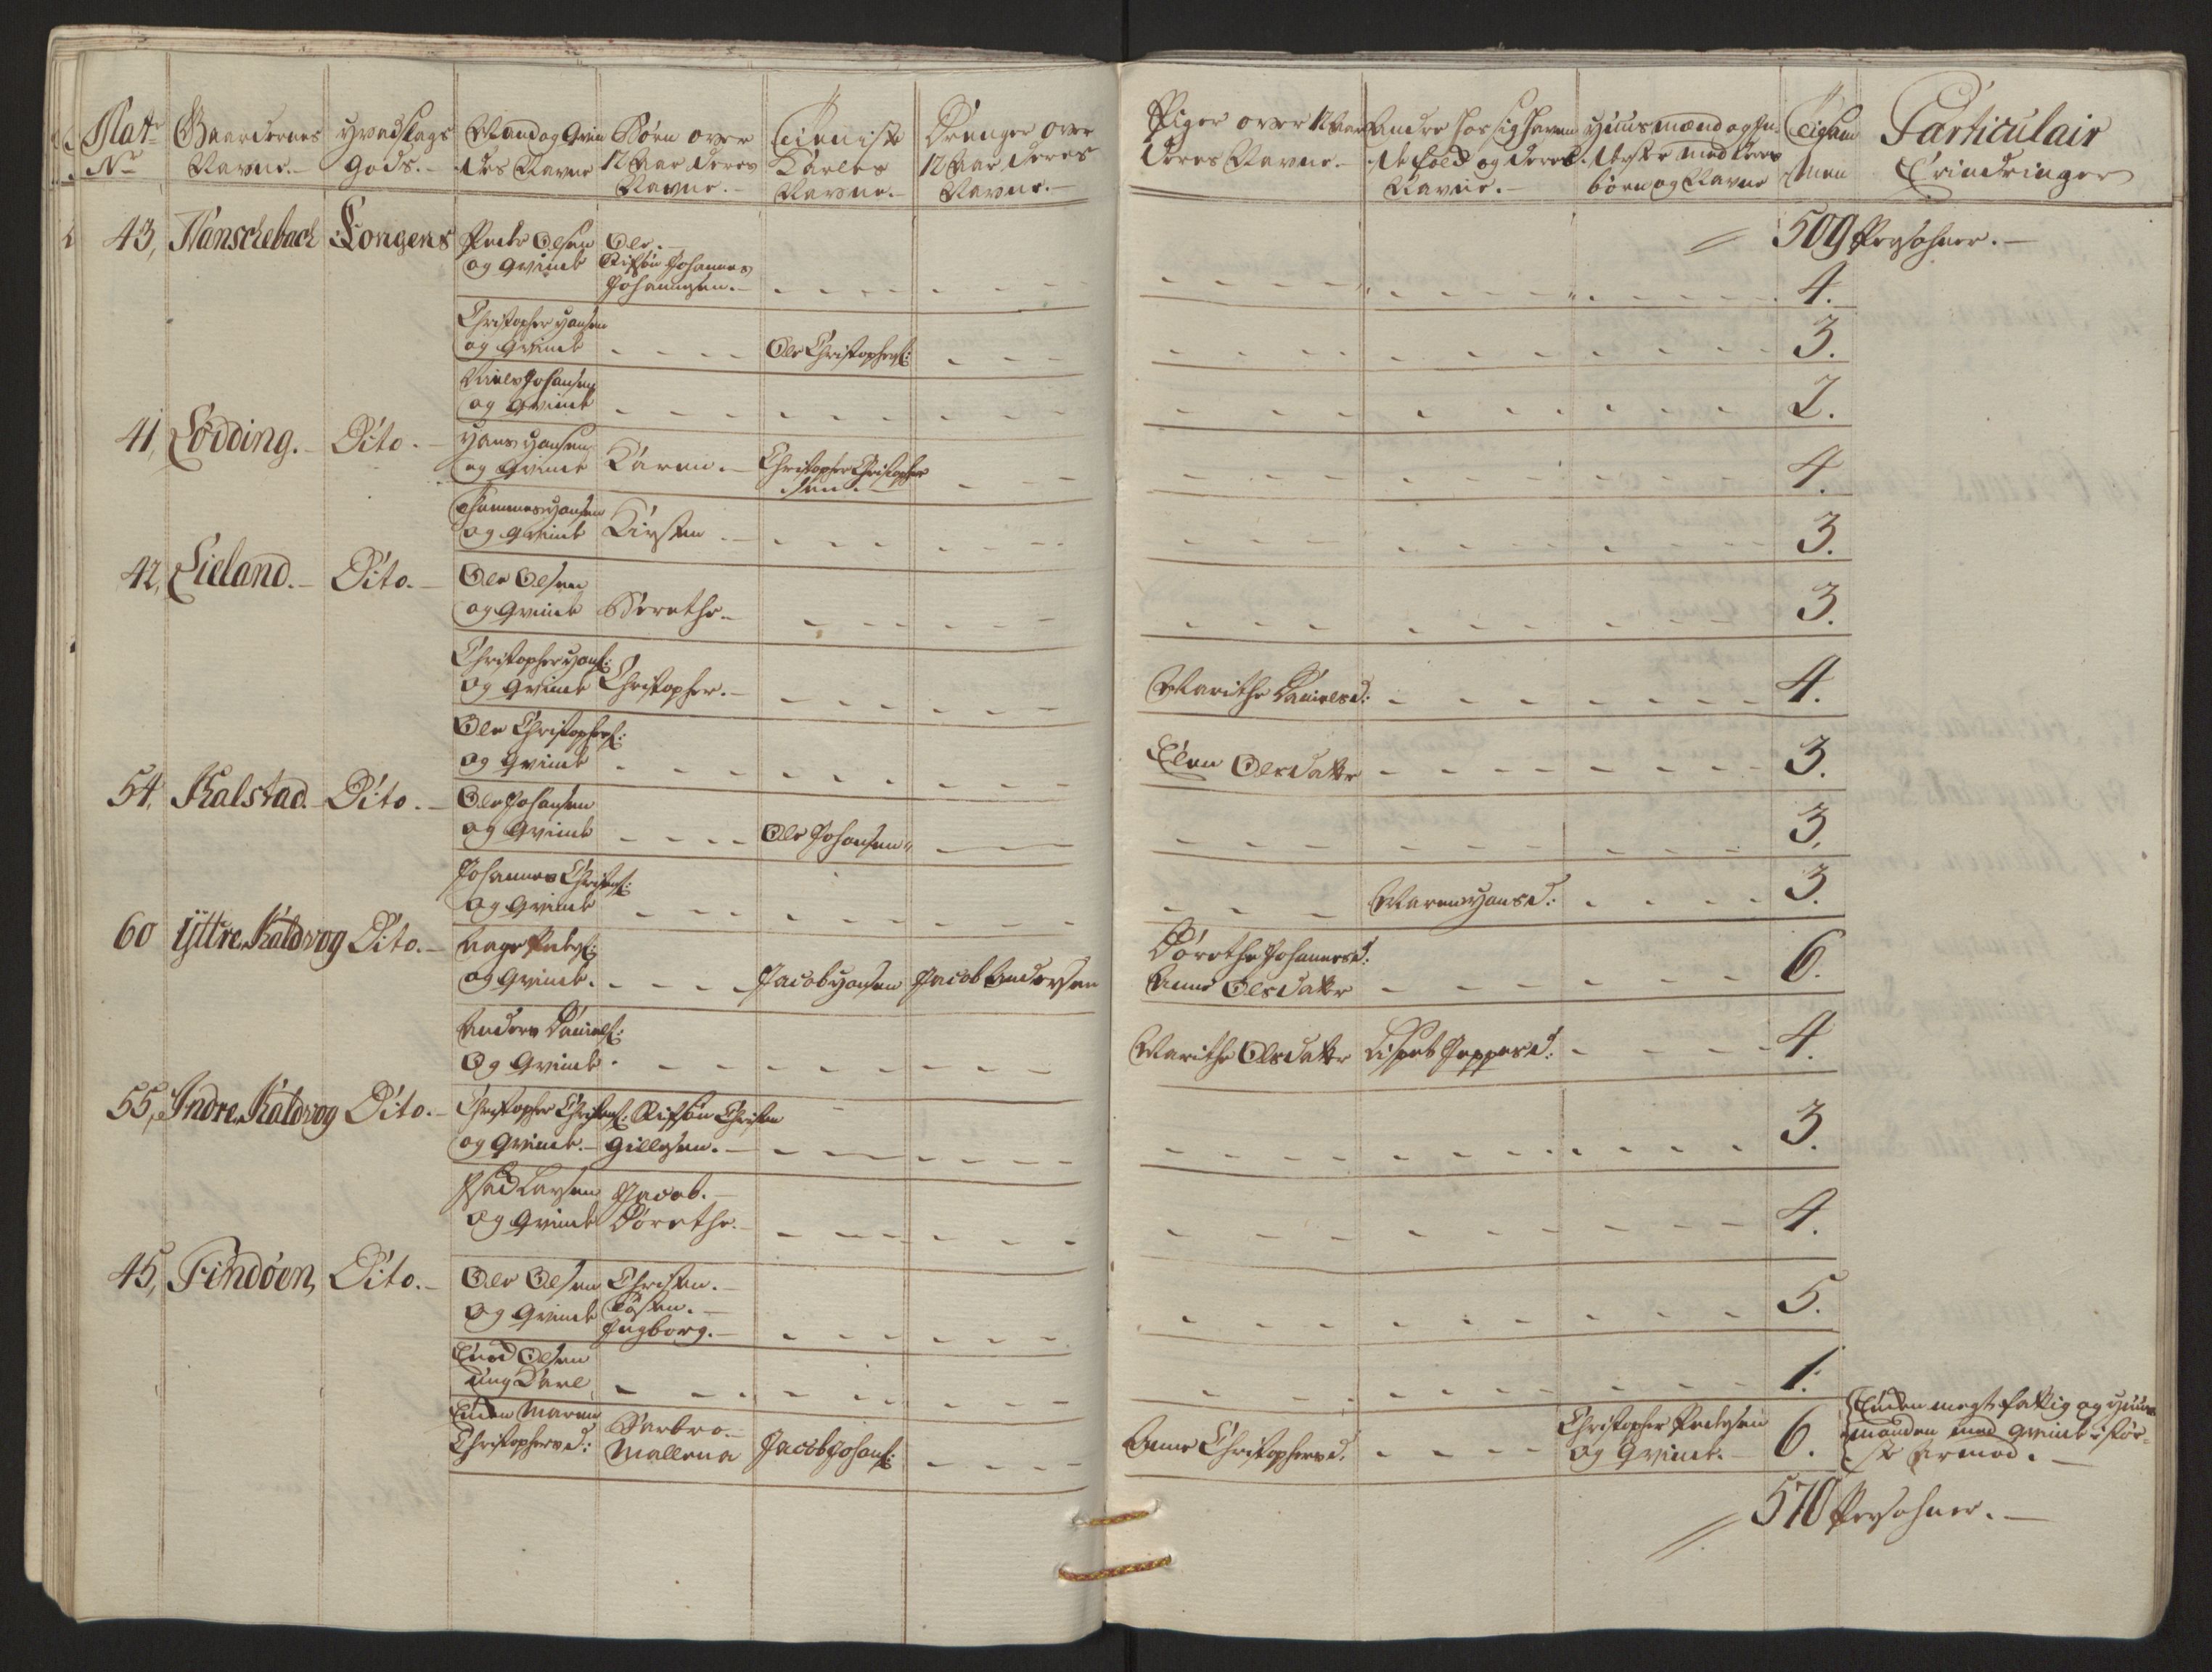 Matr Nr
Gaardernes Navne.
Hvadslags Gods.
Mand og Qvindes Navne
Børn over 12 Aar deres Navne.
Tieniste Karles Navne.
Drenger over 12 Aar deres Navne.
Piger over 12 Aar deres Navne.
Andre hos sig haven de fold og deres Navne.
Huusmænd og In derster med deres børn og Navne
Tilsam men
Particulair Erindringer
509 Persohner.
43, Nanschebach Longens Peder Olsen og Qvinde Ole. Stifsøn Johannes Johannsen. 4.
Christopher Hansen og Qvinde Ole Christophers: 3.
Niels Johansen og Qvinde 2.
41, Lødding. Dito. Hans Hansen og Qvinde Karen. Christopher Christophersen. 4.
Thommes Hansen og Qvinde Kirsten 3.
42, Lieland. Dito. Ole Olsen og Qvinde Berethe 3.
Christopher Hans: og Qvinde Christopher. Marithe Danielsd: 4.
Ole Christophers: og Qvinde Elen Olsdatter 3.
54, Kalstad. Dito. Ole Johansen og Qvinde Ole Johansen 3,
Johannes Christens: og Qvinde Maren Hansd: 3.
60 Yttre Kaldvog Dito. Aage Peders: og Qvinde. Jacob Hansen Jacob Andersen Dorethe Johannesd: Anne Olsdatter 6.
Anders Daniels: Og Qvinde. Marithe Olsdatter Lisbet Jeppesd: 4.
55, Indre Kaldvog Dito. Christopher Christens: og Qvinde. Stifsøn Christen Gillesen. 3.
Larsen og Qvinde Jacob. Dorethe. 4.
45, Findøen, Dito. Ole Olsen og Qvinde Christen. Ingborg. 5.
Knud Olsen ung Karl 1.
Enken Maren Christophersd: Barbro. Mallena Jacob Johans: Anne Christophersd. Christopher Pedersen og Qvinde. 6. Enken megt fattig og Huusmanden med Qvinde i største Armod.
570 Persohner.